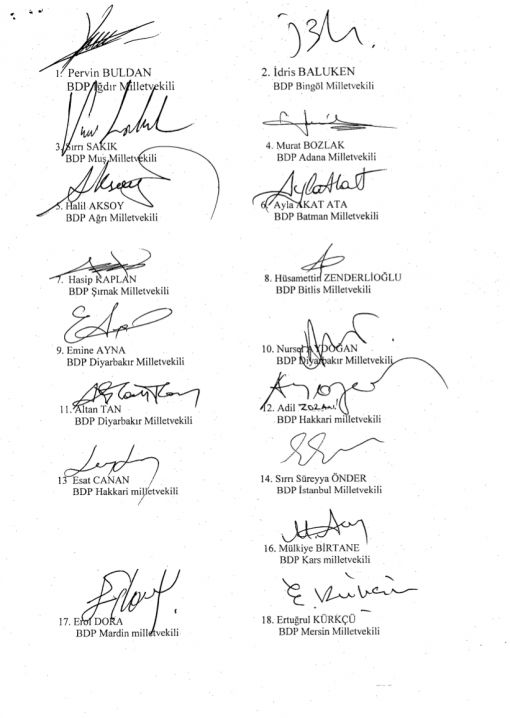 1. Pervin BULDAN
BDP Iğdır Milletvekili
2. İdris BALUKEN
BDP Bingöl Milletvekili
3. Sırrı SAKIK
BDP Muş Milletvekili
4. Murat BOZLAK
BDP Adana Milletvekili
5. Halil AKSOY
BDP Ağrı Milletvekili
6. Ayla AKAT ATA
BDP Batman Milletvekili
7. Hasip KAPLAN
BDP Şırnak Milletvekili
8. Hüsamettin ZENDERLİOĞLU
BDP Bitlis Milletvekili
9. Emine AYNA
BDP Diyarbakır Milletvekili
10. Nursel AYDOĞAN
BDP Diyarbakır Milletvekili
11. Altan TAN
BDP Diyarbakır Milletvekili
12. Adil ZOZANİ
BDP Hakkari milletvekili
13 Esat CANAN
BDP Hakkari milletvekili
14. Sırrı Süreyya ÖNDER
BDP İstanbul Milletvekili
16. Mülkiye BİRTANE
BDP Kars milletvekili
17. Erol DORA
BDP Mardin milletvekili
18. Ertuğrul KÜRKÇÜ
BDP Mersin Milletvekili